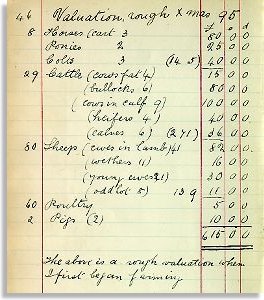 46 Valuation, rough Xmas 95
£ s d
8 Horses (cart 3 80 0 0
Ponies 2 25 0 0
Colts 3 (145) 40 0 0
29 Cattle (cows fat 4) 15 0 0
(bullocks 6) 80 0 0
(cows in calf 9) 100 0 0
(heifers 4) 40 0 0
(calves 6) (271) 36 0 0
80 Sheep (ewes in lamb) 41 82 0 0
(wethers 11) 16 0 0
(young ewes 21) 30 0 0
(odd lot 5) 139 11 0 0
60 Poultry 5 0 0
2 Pigs (2) 10 0 0
£ 615 0 0
The above is a rough valuation when
I first began farming